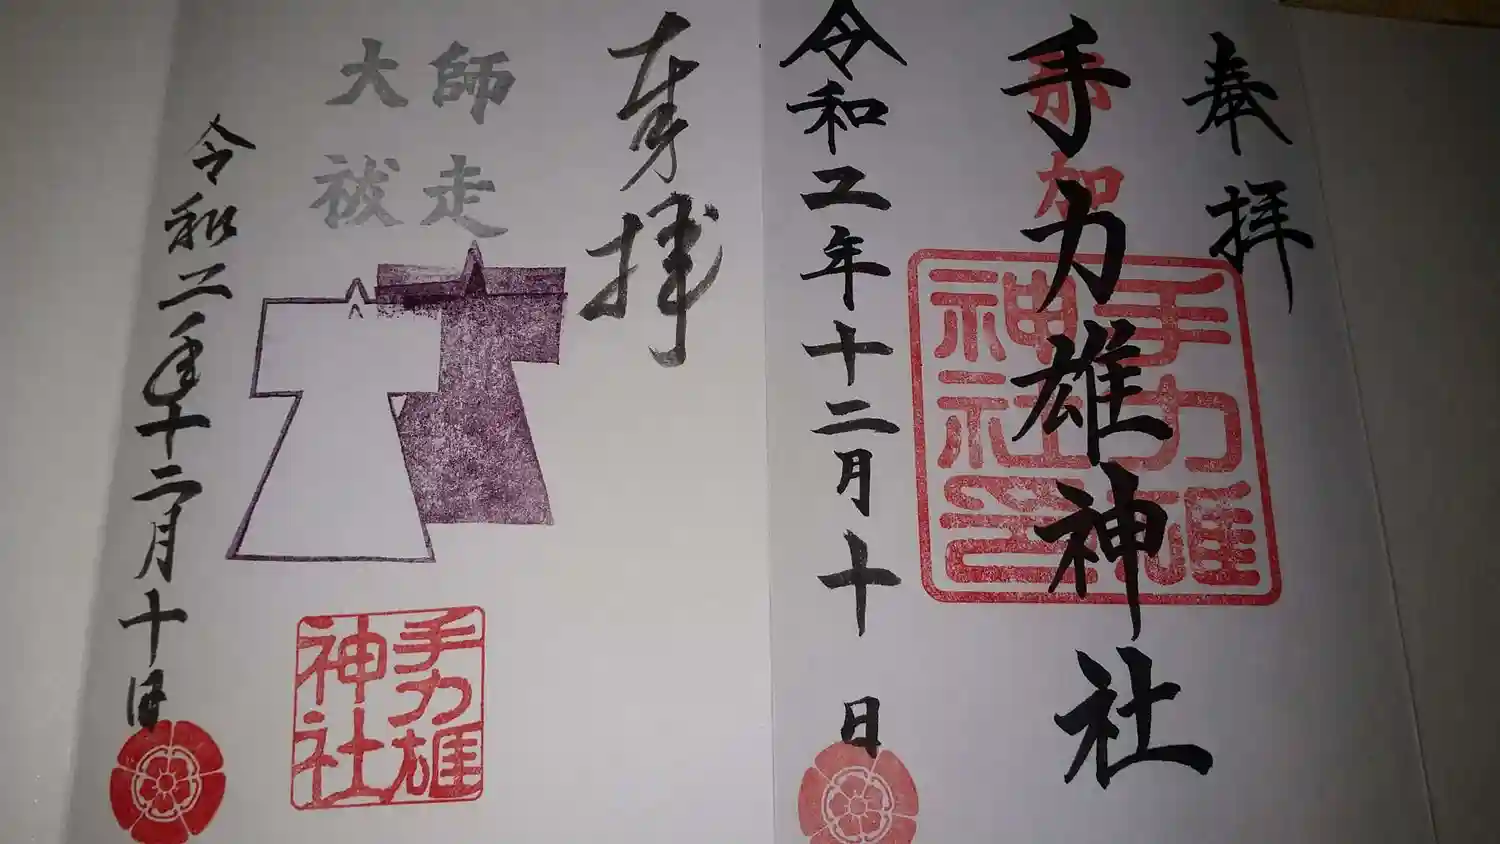 奉拝
手力雄神社
那加
手力雄
神社之
令和二年十二月十日
奉拝
師走
大祓
手力雄
神社
令和二年十二月十日